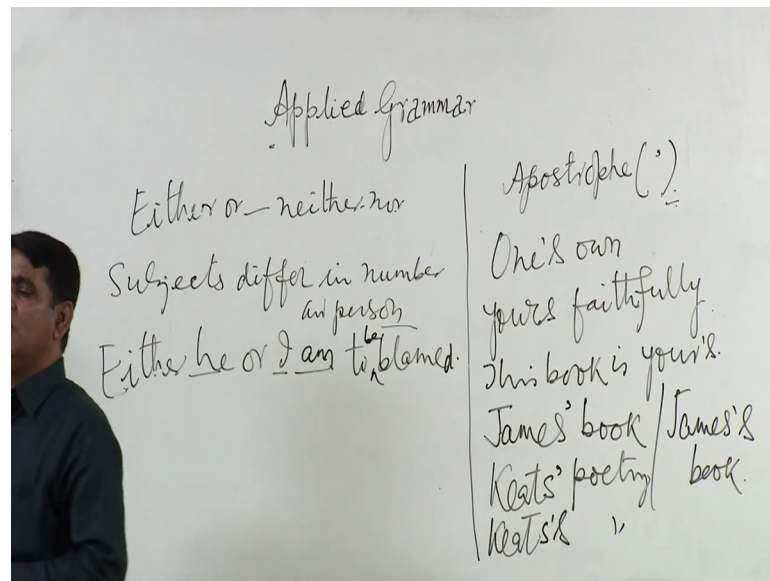 Applied Grammar
Either or – neither nor
Subjects differ in number
and person
Either he or I am to be blamed.
Apostrophe (')
One's own
yours faithfully.
This book is your's.
James' book / James's
Keats' poetry / book.
Keats's "